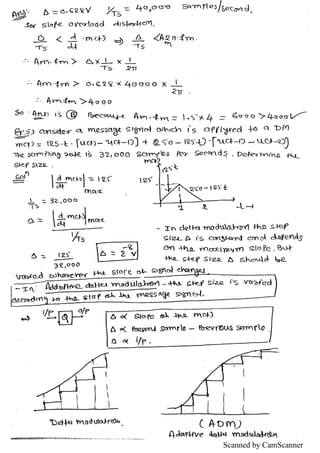 Ans: Δ = 0.628V 1/Ts = 40,000 Samples/second.
for slope overload distortion.
Δ/Ts < d/dt m(t) ⇒ Δ/Ts < A2π.fm
∴ Am.fm > Δ × 1/Ts × 1/2π
∴ Am.fm > 0.628 × 40000 × 1/2π
∴ Am.fm > 4000
So Ans is (B) Because Am.fm = 1.5×4 = 6000 > 4000V
Ex:3) Consider a message signal which is applyred to a DM
m(t) = 125t[u(t)-u(t-1)] + (250-125t).[u(t-1)-u(t-2)]
The sampling rate is 32,000 Samples Per Seconds. Determine the
Step size.
Soln
m(t)
125t
|d/dt m(t)|max = 125
125
250-125t
1 2 t
1/Ts = 32,000
Δ = |d/dt m(t)|max / 1/Ts
- In delta modulation the step
size Δ is constant and depends
on the maximum slope. But
the step size Δ should be
Δ = 125/32,000 Δ = 2^-8 V
varied whenever the slope of signal changes.
- In Adaptive delta modulation - the step size is varied
according to the slop of the message signal.
⇒ I/P Q O/P
Δ ∝ Slope of the m(t)
Δ ∝ Present sample - Previous sample
Δ ∝ I/P.
Delta modulation.
(ADM)
Adaptive delta modulation
Scanned by CamScanner